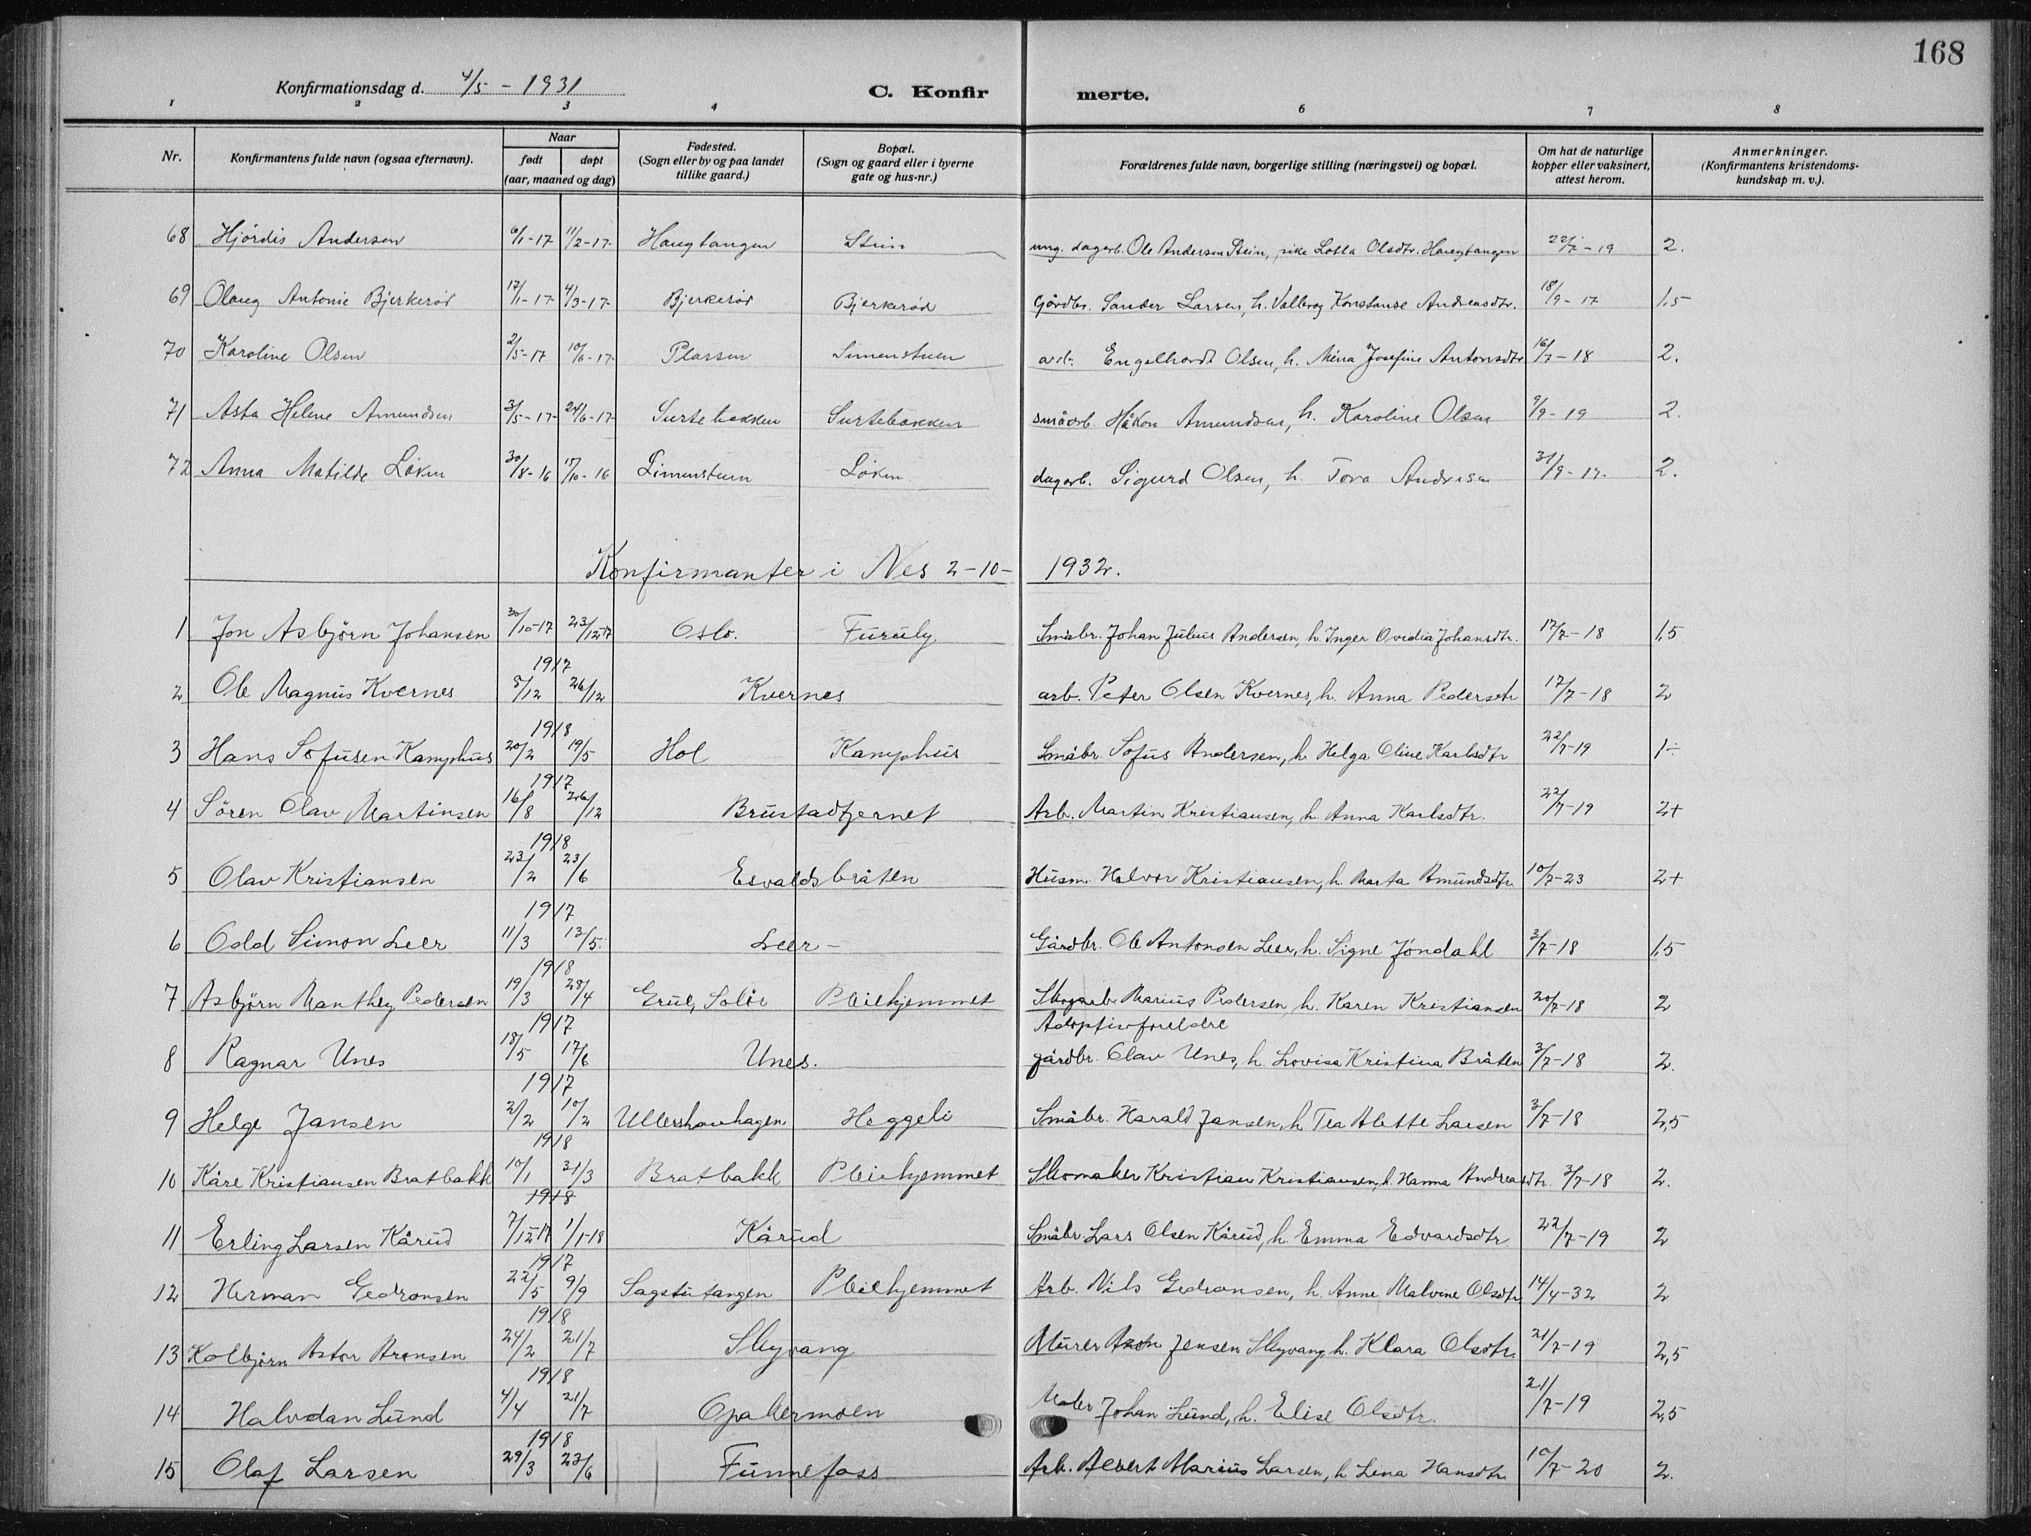 168
Konfirmationsdag d. 4/5 - 1931 C. Konfirmerte.
1 2 3 4 6 7 8
Nr. Konfirmantens fulde navn (ogsaa efternavn). Naar født døpt (aar, maaned og dag) Fødested. (Sogn eller by og paa landet tillike gaard.) Bopæl. (Sogn og gaard eller i byerne gate og hus-nr.) Forældrenes fulde navn, borgerlige stilling (næringsvei) og bopæl. Om hat de naturlige kopper eller vaksinert, attest herom. Anmerkninger. (Konfirmantens kristendoms- kundskap m. v.).
68 Hjördis Andersen 6/1-17 11/2-17 Haugtangen Stein ung. dagarb. Ole Andersen Stein, pike Lotta Olsdtr. Haugtangen 22/7-19 2.
69 Olaug Antonie Bjerkerød 17/1-17 4/3-17 Bjerkerød Bjerkerød Gårdbr. Sander Larsen, h. Valborg Konstanse Andreasdtr. 18/9-17 1,5
70 Karoline Olsen 2/5-17 10/6-17 Plassen Simenstuen arb. Engelhardt Olsen, h. Mina Josefine Antonsdtr 16/7-18 2.
71 Asta Helene Amundsen 3/5-17 24/6-17 Surtebakken Surtebakken småarb. Håkon Amundsen, h. Karoline Olsen 9/9-19 2.
72 Anna Matilde Løken 30/8-16 17/10-16 Simenstuen Løken dagarb. Sigurd Olsen, h. Tora Andersen 31/9-17 2.
Konfirmanter i Nes 2-10-1932.
1 Jon Asbjørn Johansen 30/10-17 23/12-17 Oslo. Furuly Småbr. Johan Julius Andersen, h. Inger Ovidia Johansdtr. 17/7-18 1,5
1917
2 Ole Magnus Kvernes 8/12 26/12 Kvernes arb. Peter Olsen Kvernes, h. Anna Pedersdtr 17/7-18 2
1918
3 Hans Sofusen Kamphus 20/2 19/5 Hol Kamphus Småbr. Sofus Andersen, h. Helga Oline Karlsdtr 22/7-19 1÷
1917
4 Søren Olav Martinsen 16/8 26/12 Brustadtjernet Arb. Martin Kristiansen, h. Anna Karlsdtr. 22/7-19 2+
1918
5 Olav Kristiansen 23/2 23/6 Esvaldsbråten Husm. Halvor Kristiansen, h. Marta Amundsdtr 10/7-23 2+
1917
6 Odd Simon Leer 11/3 13/5 Leer - Gårdbr. Ole Antonsen Leer, h. Signe Jöndahl 3/7-18 1,5
1918
7 Asbjørn Manthey Pedersen 19/3 28/4 Grue, Solør Pleiehjemmet Skogarb. Marius Pedersen, h. Karen Kristiansen 20/7-18 2
1917 Adoptivforeldre
8 Ragnar Unes 18/5 17/6 Unes. gårdbr. Olav Unes, h. Lovisa Kristina Bråten 3/7-18 2.
1917
9 Helge Jansen 2/2 10/2 Ullershovhagen Heggeli Småbr. Harald Jansen, h. Tea Alette Larsen 3/7-18 2,5
1918
10 Kåre Kristiansen Bratbakk 10/1 31/3 Bratbakk Pleiehjemmet Skomaker Kristian Kristiansen, h. Hanna Andreasdtr. 3/7-18 2.
1918
11 Erling Larsen Kårud 7/12-17 1/1-18 Kårud Småbr. Lars Olsen Kårud, h. Emma Edvardsdtr 22/7-19 2
1917
12 Herman Gedronsen 22/5 9/9 Sagstutangen Pleiehjemmet Arb. Nils Gedronsen, h. Anne Malvine Olsdtr 14/4-32 2
1918
13 Kolbjørn Astor Aronsen 24/2 21/7 Skyvang Murer Aron Jensen Skyvang, h. Klara Olsdtr. 21/7-19 2,5
1918
14 Halvdan Lund 4/4 21/7 Opakermoen Maler Johan Lund, h. Elise Olsdtr. 21/7-19 2,5
1918
15 Olaf Larsen 29/3 23/6 Funnefoss Arb. Albert Marius Larsen, h. Lina Hansdtr 10/7-20 2.